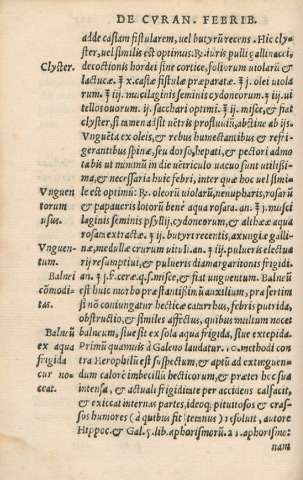 DE CVRAN. FEBRIB.
adde casiam fistularem, uel butyrũ recens. Hic cly-
ster, uel similis est optimus: ℞. iuris pulli gallinacei,
Clyster.
decoctionis hordei sine cortice, foliorum uiolarũ &
lactucæ. ℥ x. casiæ fistulæ præparatæ. ℥ j. olei uiola
rum. ℥ iij. mucilaginis seminis cydoneorum. ℥ iij. ui
tellos ouorum. ij. sacchari optimi. ℥ ij. misce, & fiat
clyster, si tamen adsit uentris profluuiũ, abstine ab ijs.
Vnguẽta ex oleis, & rebus humectantibus & refri-
gerantibus spinæ, seu dorso, hepati, & pectori admo
tabis ut minimũ in die uẽtriculo uacuo sunt utilissi-
ma, & necessaria huic febri, inter quæ hoc uel simi-
Vnguen
torum
usus.
le est optimũ: ℞. oleorũ uiolarũ, nenupharis, rosarũ
& papaueris lotorũ bene aqua rosara. an. ℥ j. musci
laginis seminis psyllij, cydoneorum, & altheæ aqua
rosarũ extractæ. an. ℥ ij. butyri recentis, axungiæ galli-
Vnguen-
tum.
næ, medullæ crurum uituli. an. ℥ iij. pulueris electua
rij resumptiui, & pulueris diamargaritonis frigidi.
Balnei
cõmodi-
tas.
an. ℥ j. ß. ceræ. q. s. misce, & fiat unguentum. Balneũ
est huic morbo præstantißimũ auxilium, præsertim
si nõ coniungatur hecticæ catarrhus, febris putrida,
obstructio, & similes affectus, quibus multum nocet
Balneũ
ex aqua
frigida
cur no-
ceat.
balneum, siue sit ex sola aqua frigida, siue ex tepida.
Primũ quamuis à Galeno laudatur. 10. methodi con
tra Herophilũ est suspectum, & aptũ ad extinguen-
dum calorẽ imbecillũ hecticorum, & præter hoc sua
intensa, & actuali frigiditate per accidens calfacit,
& exiccat internas partes, ideoq; pituitosos & cras-
sos humores (à quibus fit tetanus) resoluit, autore
Hippoc. & Gal. 5. lib. aphorismorũ. 21. aphorismo:
nam